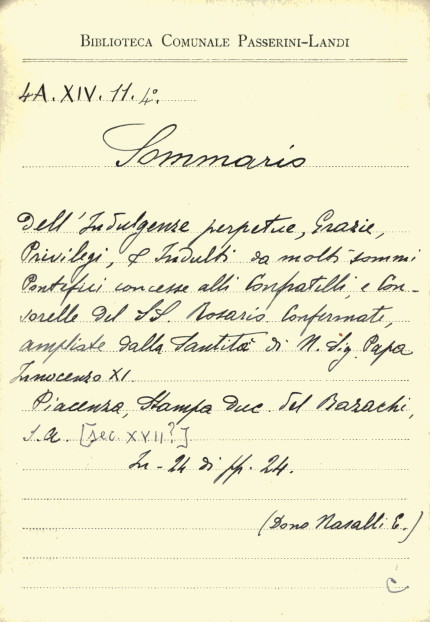 BIBLIOTECA COMUNALE PASSERINI-LANDI
4A.XIV.11.4º
Sommario
Dell'Indulgenze perpetue, Grazie,
Privilegi, & Indulti da molti sommi
Pontefici concesse alli Confratelli, e Con-
sorelle del SS. Rosario Confermate,
ampliate dalla Santità di N. Sig. Papa
Innocenzo XI.
Piacenza, Stampa Duc. del Bazachi,
s.a. [sec. XVII?]
In-24 di pp. 24.
(Dono Nasalli E.)